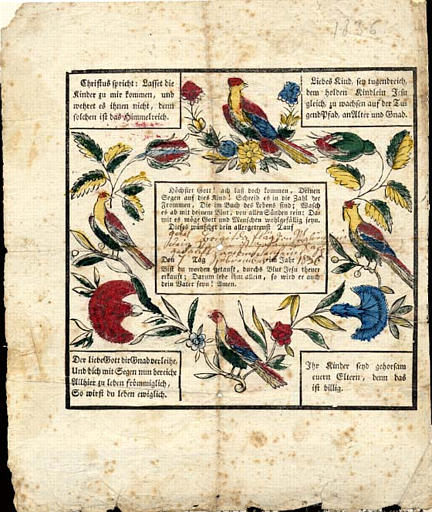 1836
Christus spricht: Lasset die
Kinder zu mir kommen, und
wehret es ihnen nicht, denn
solchen ist das Himmelreich.
Liebes Kind, sey tugendreich,
dem holden Kindlein Jesu
gleich, zu wachsen auf der Tu-
gend Pfad, an Alter und Gnad.
Höchster Gott! ach laß doch kommen, Deinen
Segen auf dies Kind! Schreib es in die Zahl der
Frommen, Die im Buch des Lebens sind; Wasch
es ab mit deinem Blut, von allen Sünden rein: Da-
mit es möge Gott und Menschen wohlgefällig seyn.
Dieses wünschet dein allergetreuste Tauf
Den 7 Tag im Jahr 1836
Bist du worden getauft, durchs Blut Jesu theuer
erkauft; Darum lebe ihm allein, so wird er auch
dein Vater seyn! Amen.
Der liebe Gott dir Gnad verleihe,
Und dich mit Segen nun bereiche
Allhier zu leben frömmiglich,
So wirst du leben ewiglich.
Ihr Kinder seyd gehorsam
euern Eltern, denn das
ist billig.